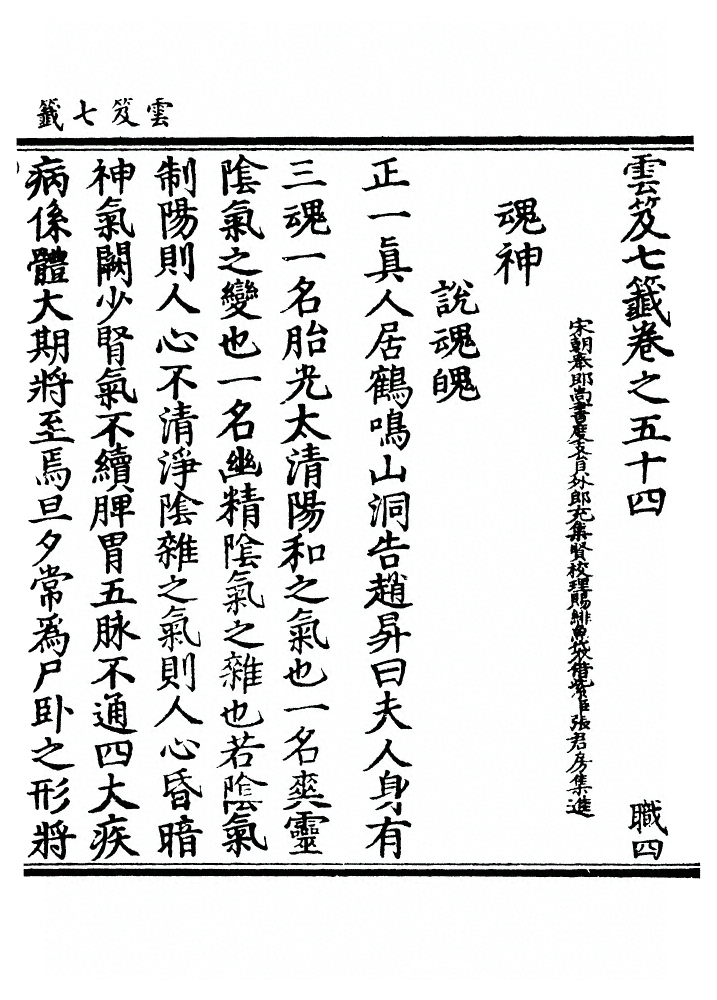 雲笈七籤
雲笈七籤卷之五十四 職四
宋朝奉郎尚書度支員外郎充集賢校理賜緋魚袋借紫臣張君房集進
魂神
說魂魄
正一眞人居鶴鳴山洞告趙昇曰夫人身有
三魂一名胎光太清陽和之氣也一名爽靈
陰氣之變也一名幽精陰氣之雜也若陰氣
制陽則人心不清淨陰雜之氣則人心昏暗
神氣闕少腎氣不續脾胃五脉不通四大疾
病係體大期將至焉旦夕常爲尸卧之形將